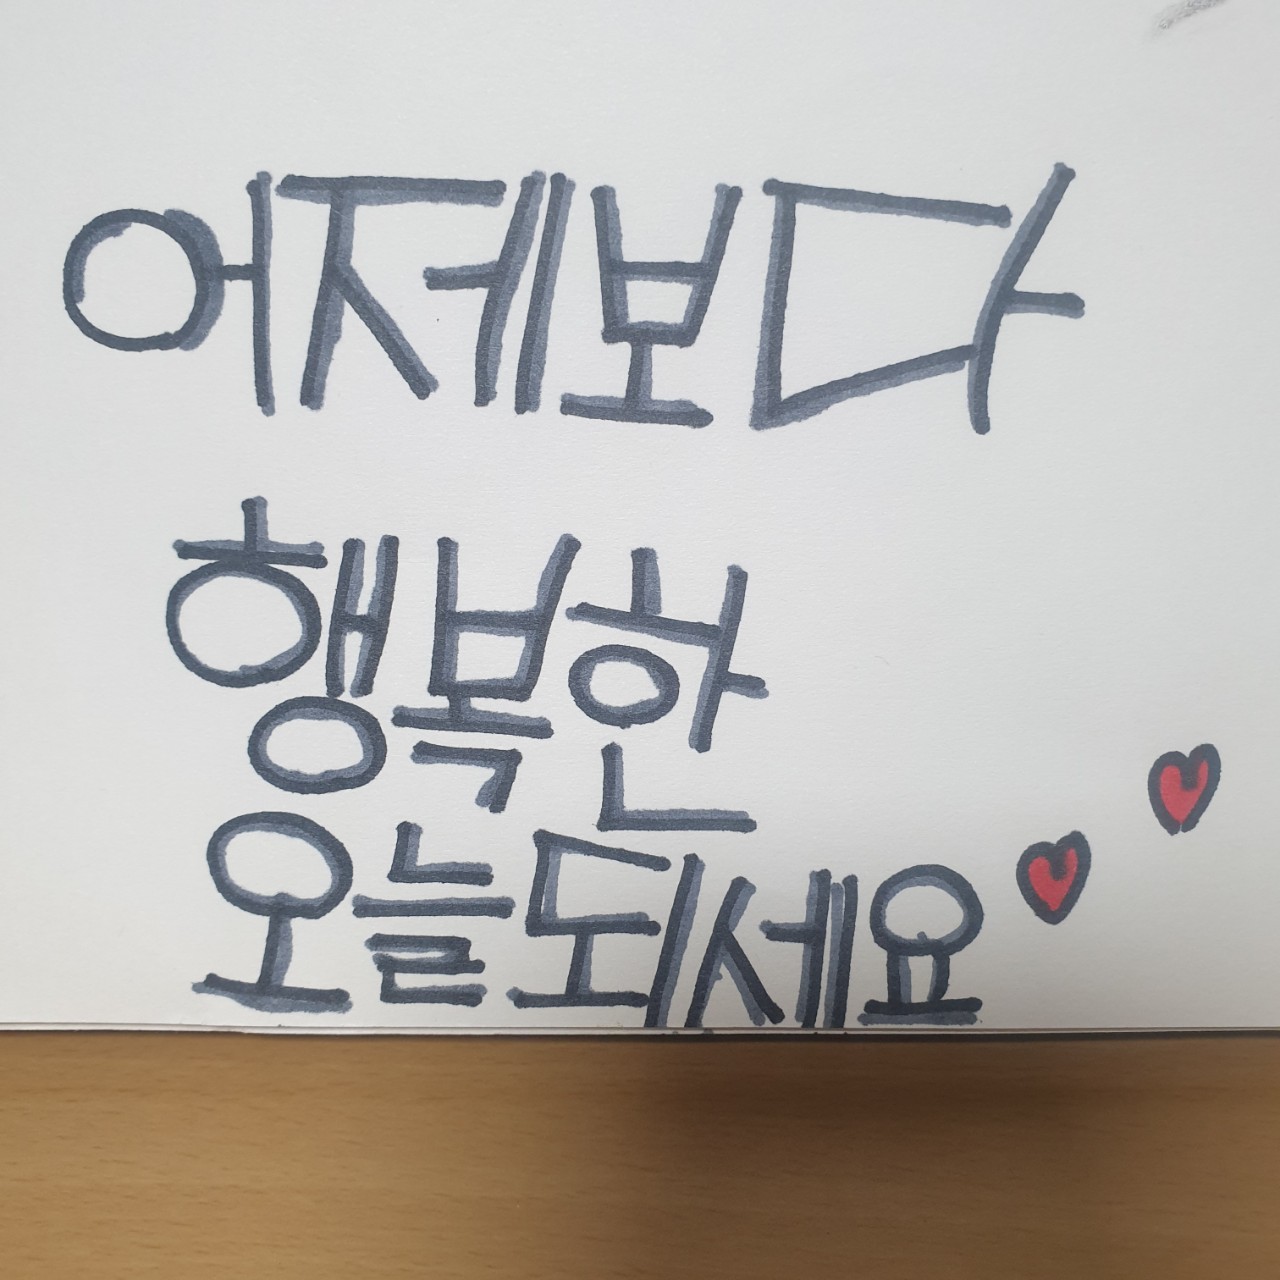 어제보다
행복한
오늘되세요